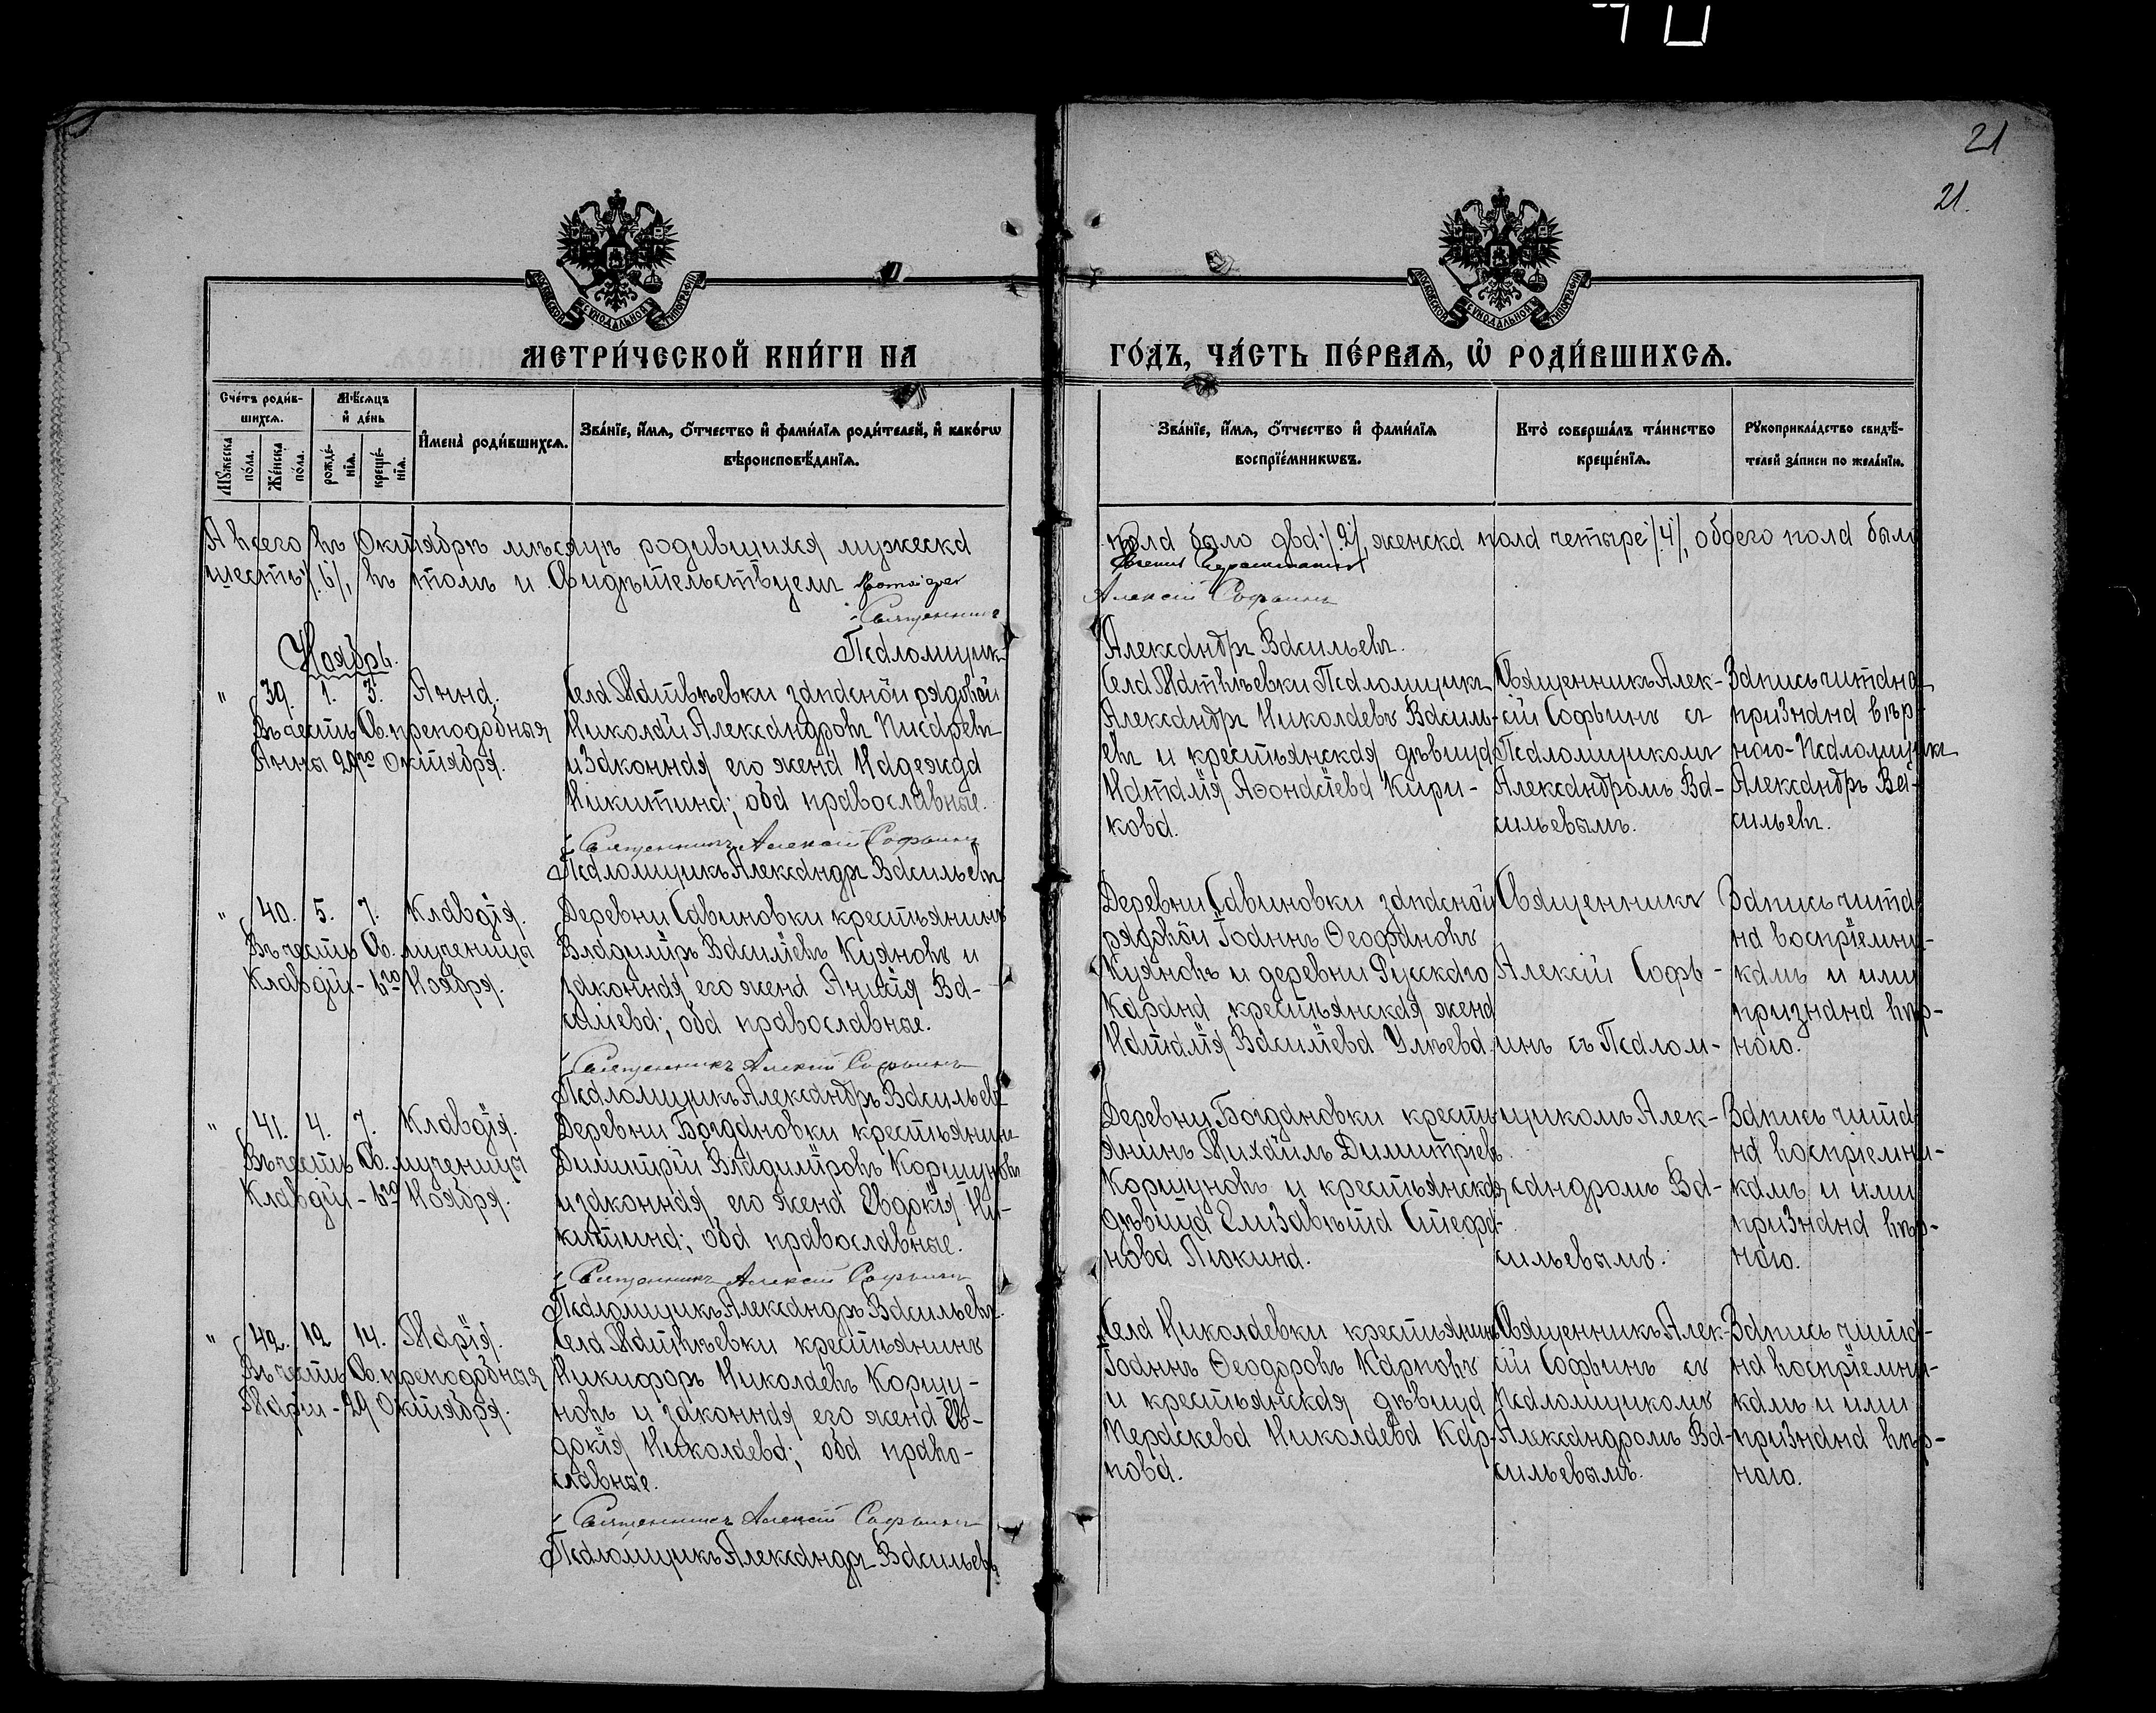 21
21.
МОСКОВСКОЙ СѴНОДАЛЬНОЙ ТИПОГРАФІИ
МОСКОВСКОЙ СѴНОДАЛЬНОЙ ТИПОГРАФІИ
МЕТРИ́ЧЕСКОЙ КНИ́ГИ НА
ГО́ДЪ, ЧА́СТЬ ПЕ́РВАѦ, Ѡ҆ РОДИ́ВШИХСѦ.
Сче́тъ роди́в-
шихсѧ.
Мꙋ́жеска
по́ла.
Же́нска
по́ла.
Мѣ́сѧцъ
и҆ де́нь
рожде́-
нїѧ.
креще́-
нїѧ.
И҆мена̀ роди́вшихсѧ.
Зва́нїе, и҆́мѧ, ѻ҆́тчество и҆ фами́лїѧ роди́телей, и҆ како́гѡ
вѣроисповѣ́данїѧ.
Зва́нїе, и҆́мѧ, ѻ҆́тчество и҆ фами́лїѧ
воспрїе́мникѡвъ.
Кто̀ соверша́лъ та́инство
креще́нїѧ.
Рꙋкоприкла́дство свидѣ́-
телей за́писи по жела́нїю.
А всего въ Октябрѣ мѣсяцѣ родившихся мужеска
пола было два /2/, женска пола четыре /4/, обоего пола было
шесть /6/, въ томъ и свидѣтельствуемъ
Священникъ
Алексій Софьинъ
Псаломщикъ
Александръ Васильевъ.
Ноябрь.
" 39. 1. 3. Анна.
Въ честь Св. преподобныя
Анны 29го Октября.
Села Матвѣевки запасной рядовой
Николай Александровъ Писаревъ
и законная его жена Надежда
Никитина; оба православные.
Священникъ Алексій Софьинъ
Псаломщикъ Александръ Васильевъ
Села Матвѣевки Псаломщикъ
Александръ Николаевъ Василь-
евъ и крестьянская дѣвица
Наталія Аѳонасіева Кири-
кова.
Священникъ Алек-
сій Софьинъ съ
Псаломщикомъ
Александромъ Ва-
сильевымъ.
Запись читана
признана вѣр-
ною-Псаломщикъ
Александръ Ва-
сильевъ.
" 40. 5. 7. Клавдія.
Въ честь Св. мученицы
Клавдіи - 6го Ноября.
Деревни Савиновки крестьянинъ
Владиміръ Василіевъ Куяновъ и
законная его жена Анисія Ва-
силіева; оба православные.
Священникъ Алексій Софьинъ
Псаломщикъ Александръ Васильевъ
Деревни Савиновки запасной
рядовой Іоаннъ Ѳеофановъ
Куяновъ и деревни Русскаго
Карана крестьянская жена
Наталія Василіева Улѣева.
Священникъ
Алексій Софь-
инъ съ Псалом-
Запись чита-
на воспріемни-
камъ и ими
признана вѣр-
ною.
" 41. 4. 7. Клавдія.
Въ честь Св. мученицы
Клавдіи - 6го Ноября.
Деревни Богдановки крестьянинъ
Димитрій Владиміровъ Коршуновъ
и законная его жена Евдокія Ни-
китина; оба православные.
Священникъ Алексій Софьинъ
Псаломщикъ Александръ Васильевъ.
Деревни Богдановки кресть-
янинъ Михаилъ Димитріевъ
Коршуновъ и крестьянская
дѣвица Елизавѣта Стефа-
нова Люкина.
щикомъ Алек-
сандромъ Ва-
сильевымъ.
Запись чита
на воспріемни-
камъ и ими
признана вѣр-
ною.
" 42. 12 14. Марія.
Въ честь Св. преподобныя
Маріи - 29 Октября.
Села Матвѣевки крестьянинъ
Никифоръ Николаевъ Коршу-
новъ и законная его жена Ев-
докія Николаева; оба право-
славные.
Священникъ Алексій Софьинъ
Псаломщикъ Александръ Васильевъ
Села Николаевки крестьянинъ
Іоаннъ Ѳеодоровъ Карповъ
и крестьянская дѣвица
Пераскева Николаева Кар-
пова.
Священникъ Алек-
сій Софьинъ съ
Псаломщикомъ
Александромъ Ва-
сильевымъ.
Запись чита-
на воспріемни-
камъ и ими
признана вѣр-
ною.